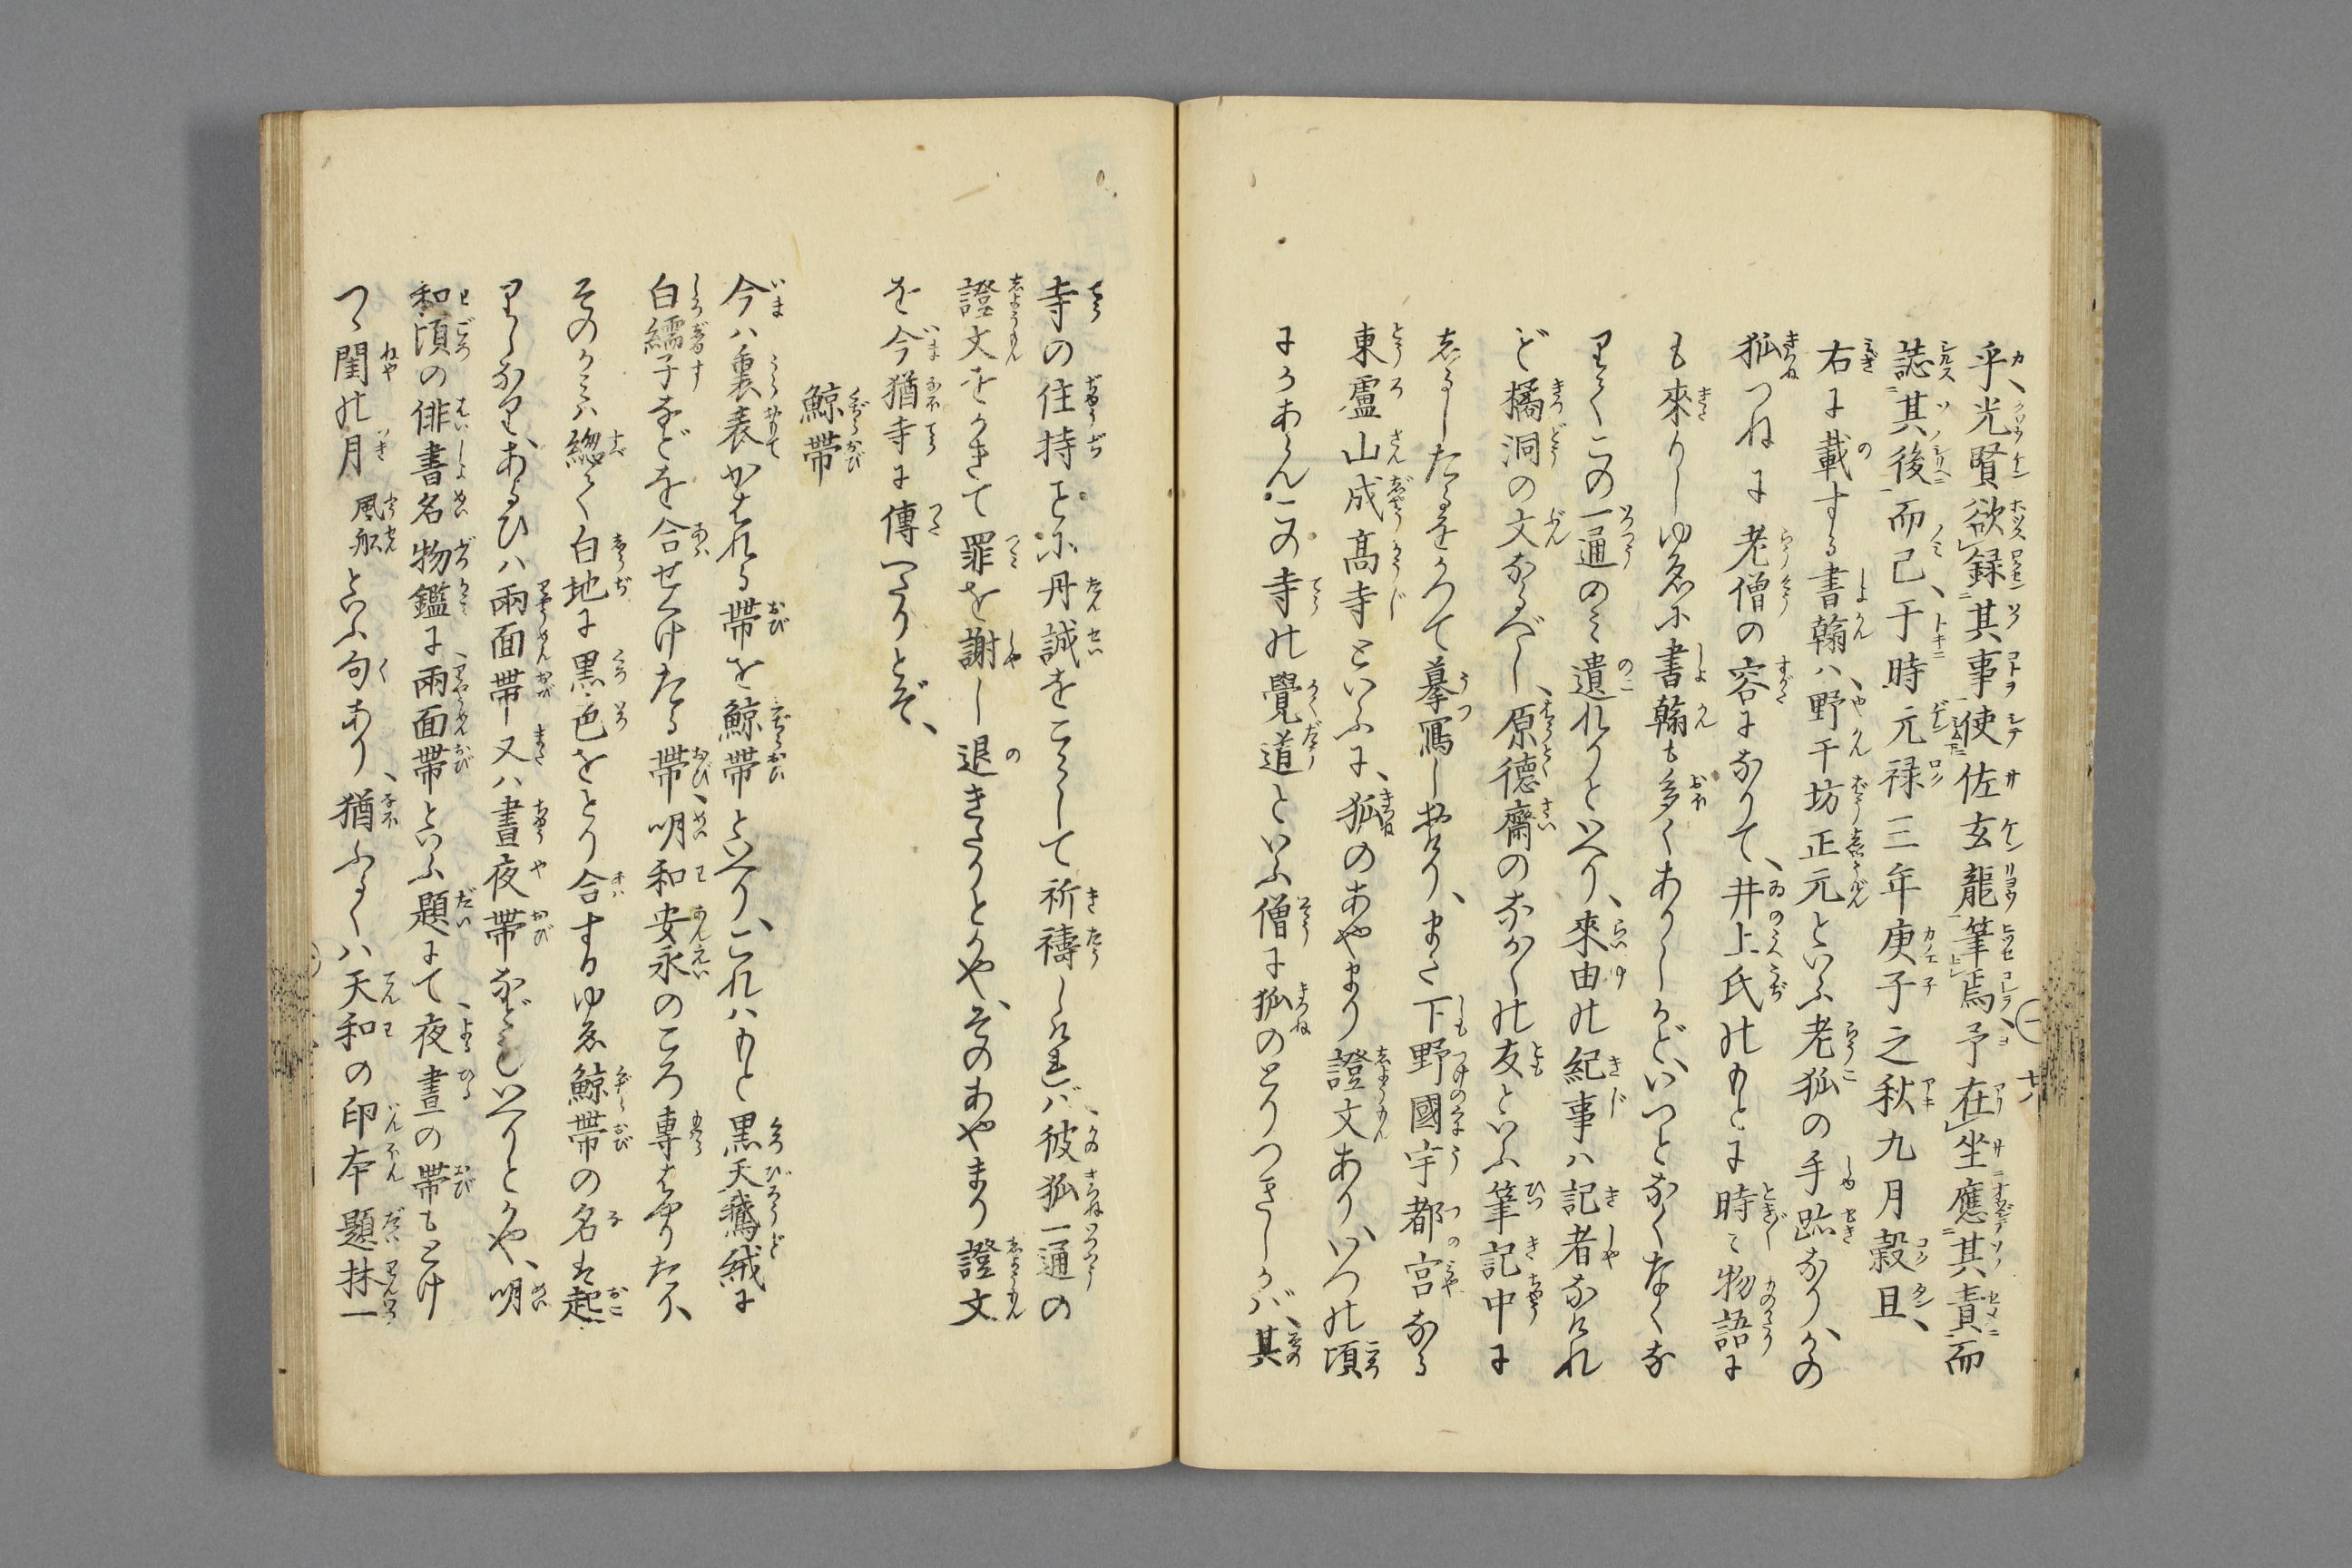 乎、光賢欲録其事使佐玄龍筆焉、予在坐應其責而
誌其後而已、于時元禄三年庚子之秋九月穀旦、
右に載する書翰ハ、野干坊正元といふ老狐の手跡なり、かの
狐つねに老僧の容になりて、井上氏のもとに時々物語に
も來りしゆゑに書翰も多くありしかど、いつとなくなくな
りてこの一通のみ遺れりといへり、來由の紀事ハ記者なけれ
ど橘洞の文なるべし、原德齋のなかしの友といふ筆記中に
しるしたるをかつて摹寫しおけり、また下野國宇都宮なる
東盧山成高寺といふに、狐のあやまり證文あり、いつの頃
にかありけん、この寺の覺道といふ僧に狐のとりつきしかバ、其
寺の住持ことに丹誠をこらして祈禱しけれバ、彼狐一通の
證文をかきて罪を謝し退きたりとかや、そのあやまり證文
を今猶寺に傳へたりとぞ、
鯨帶
今ハ裏表かはれる帶を鯨帶といへり、これハもと黒天鵞絨に
白繻子などを合せくけたる帶、明和安永のころ專はやりたり、
そのかみハ總て白地に黒色をとり合するゆゑ鯨帶の名は起
りしなり、あるひハ兩面帶又ハ晝夜帶などもいへりとかや、明
和頃の俳書名物鑑に兩面帶といふ題にて、夜晝の帶もとけ
つゝ閨の月 風舩といふ句あり、猶ふるくハ天和の印本題林一
七六